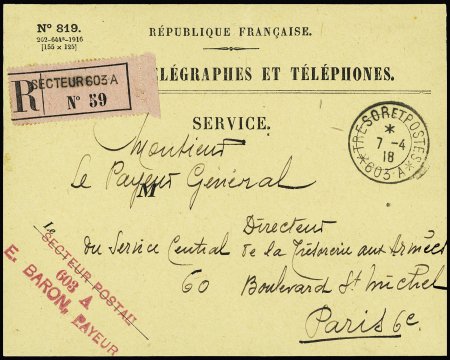 N° 819.
202-644ᵉ-1916
[155 x 125]
RÉPUBLIQUE FRANÇAISE.
LÉGRAPHES ET TÉLÉPHONES.
SECTEUR 603 A
R
N° 39
SERVICE.
TRESOR ET POSTES
*
7 -4
18
*603·A*
Monsieur
Le Payeur Général
M
Le
Directeur
du Service Central de la Trésorerie aux Armées
60 Boulevard St Michel
Paris 6e
SECTEUR POSTAL
603 A
E. BARON, PAYEUR